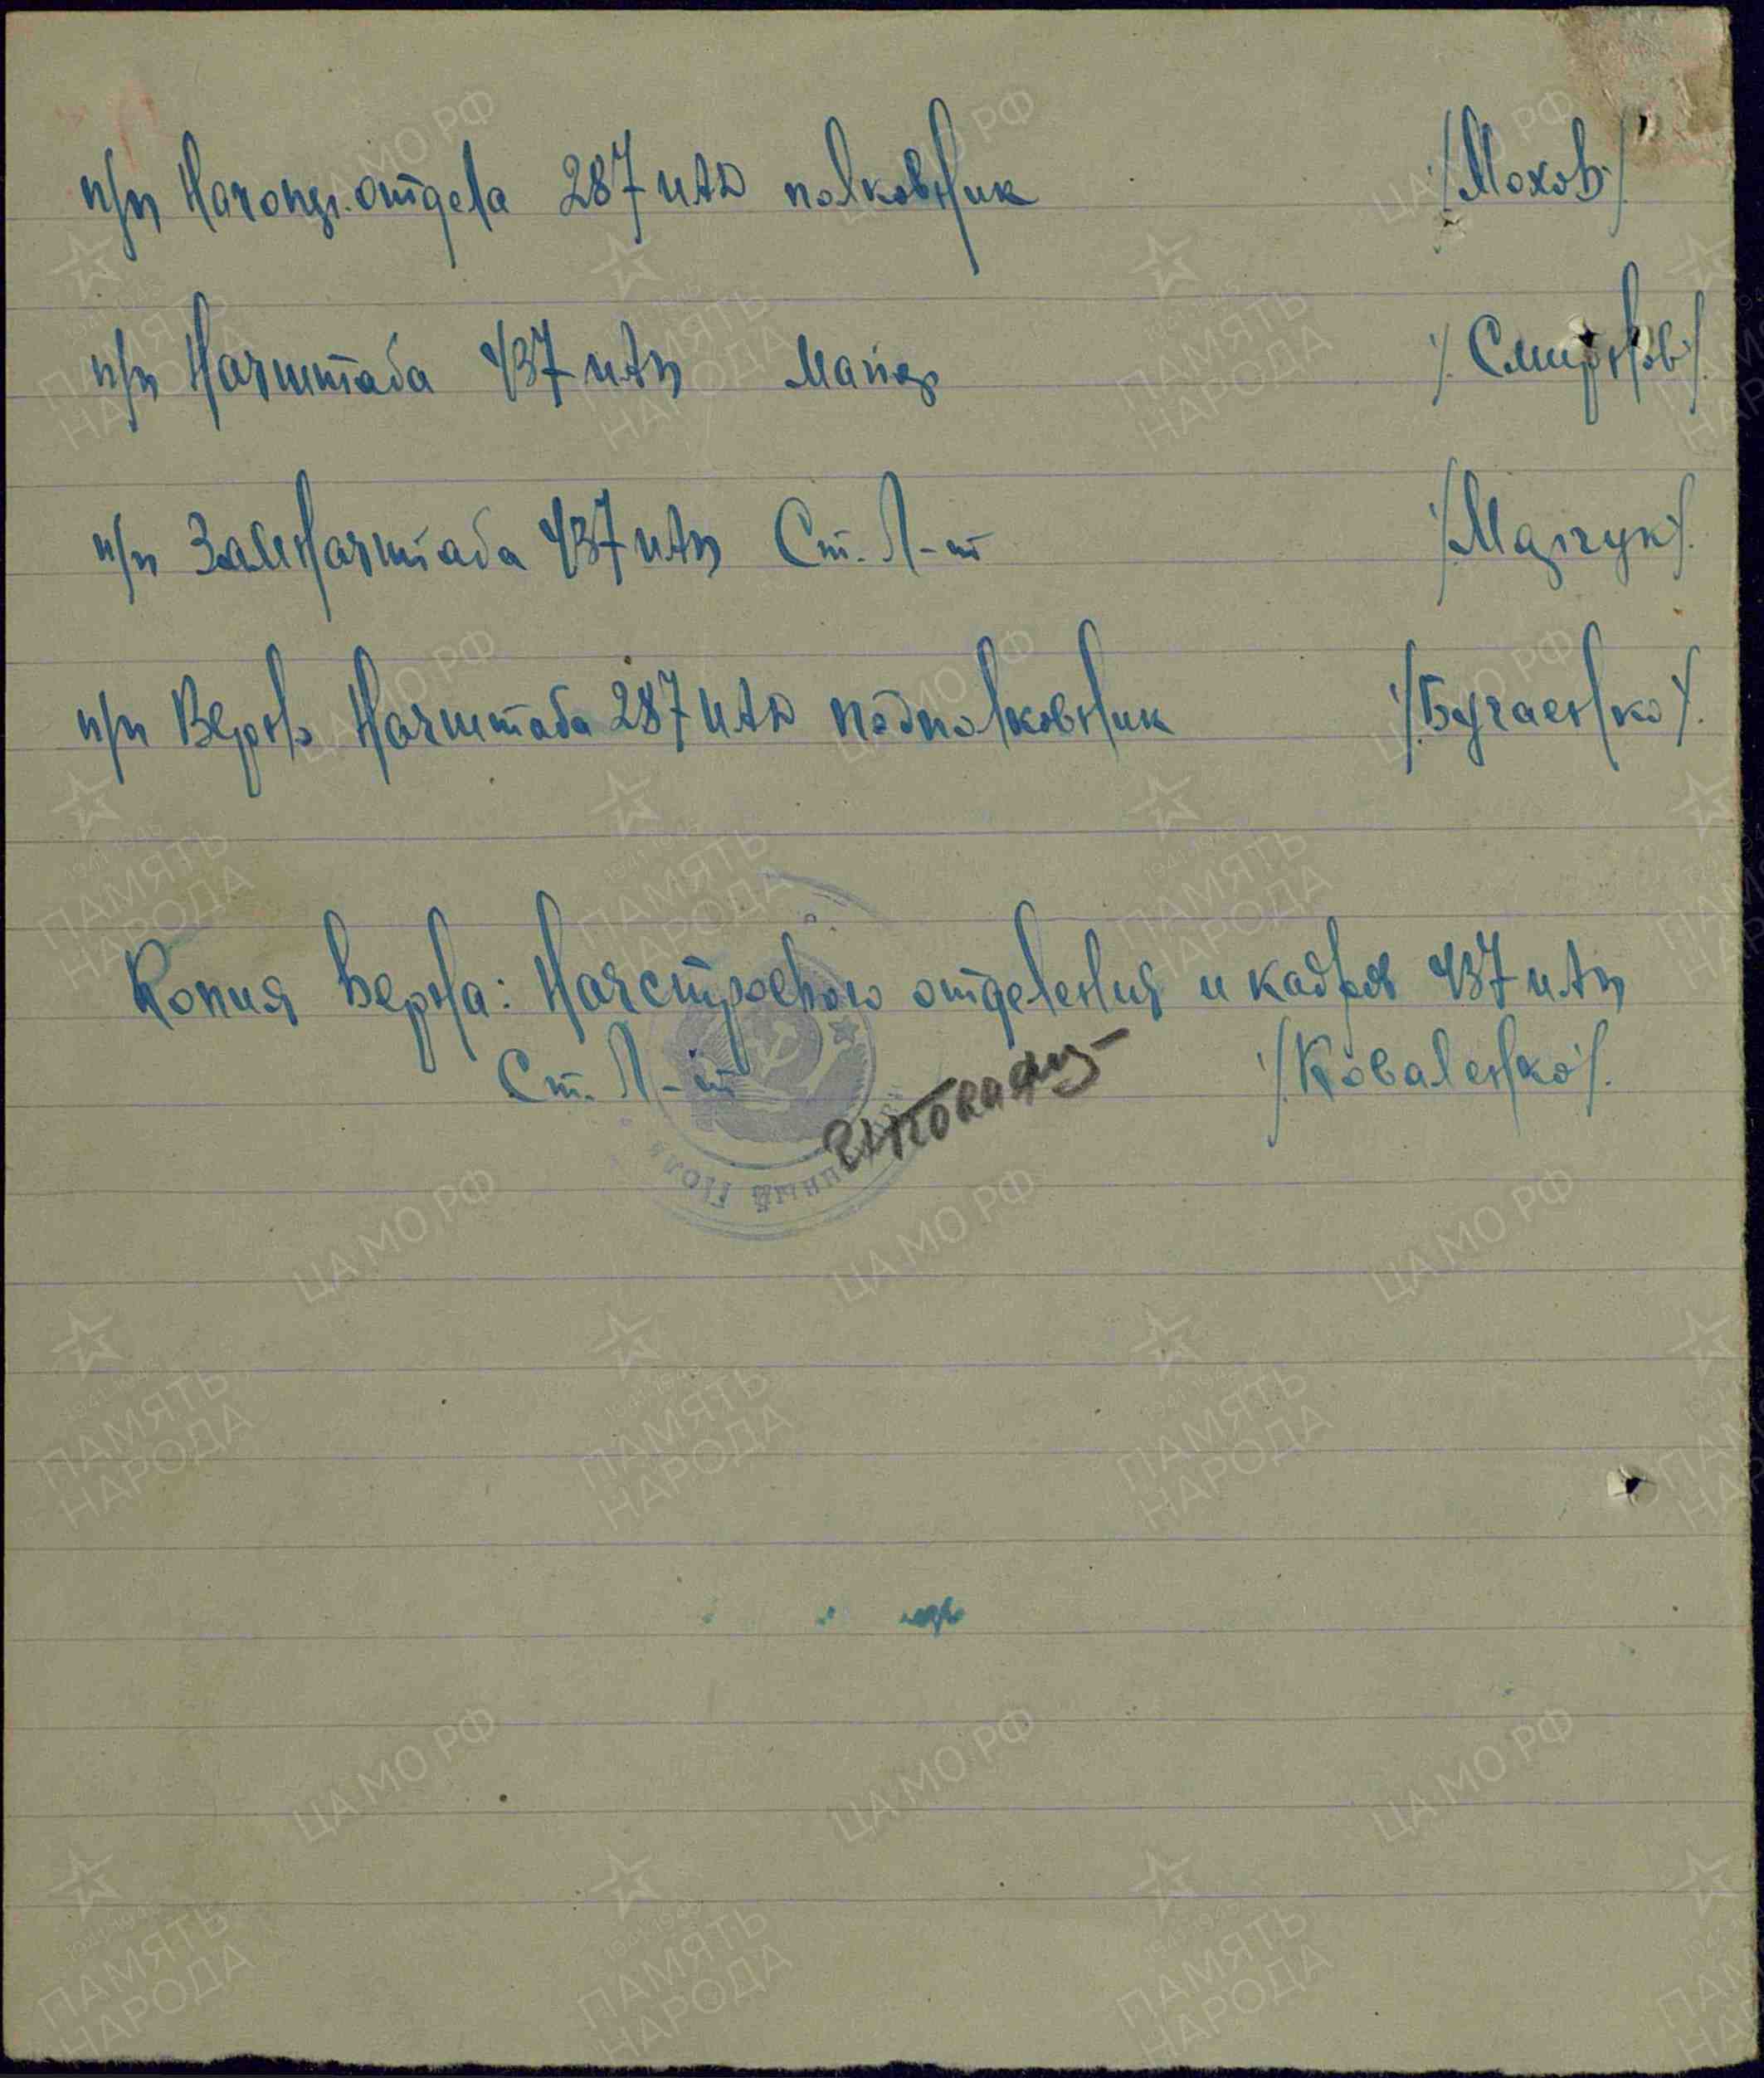 п/п Начопер. отдела 287 иАД полковник /Мохов/
п/п Начштаба 737 иАп Майор /Смирнов/.
п/п ЗамНачштаба 737 иАп Ст. Л-т /Мазчук/.
п/п Верно Начштаба 287 иАД подполковник /Бугаенко/.
Копия верна: Начстроевого отделения и кадров 737 иАп
Ст. Л-т /Коваленко/.